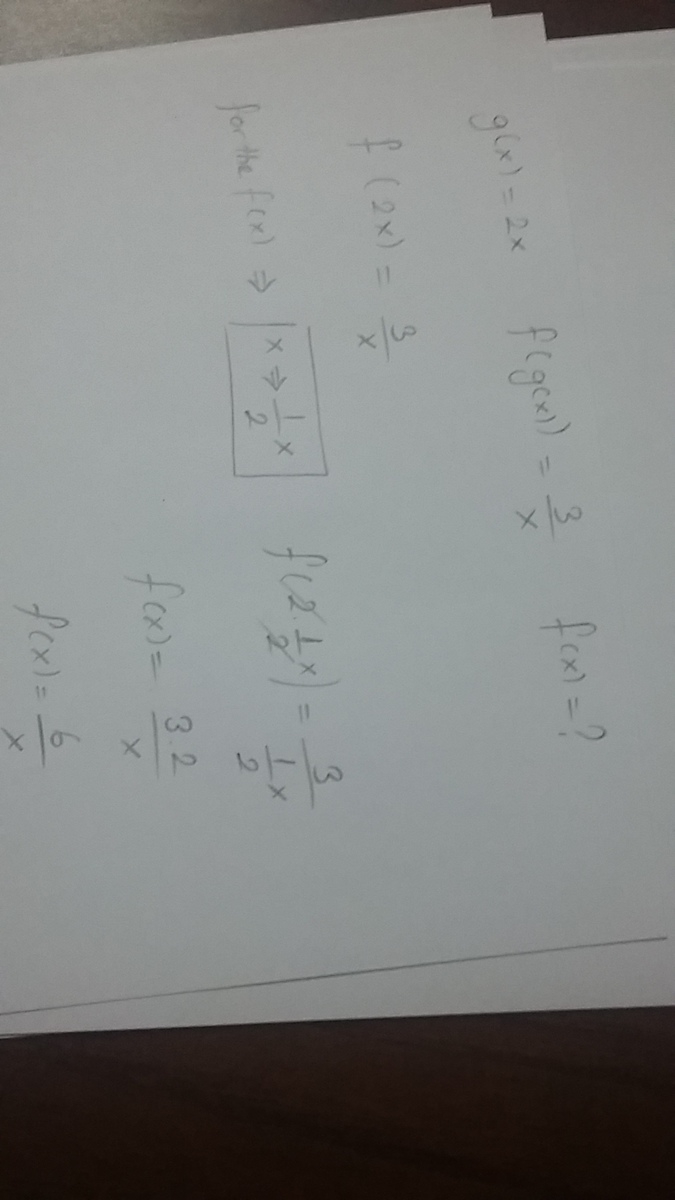 g(x) = 2x f(g(x)) = 3/x f(x) = ?
f(2x) = 3/x
for the f(x) ⇒ x ⇒ 1/2 x f(2·1/2 x) = 3/(1/2 x)
f(x) = 3.2/x
f(x) = 6/x